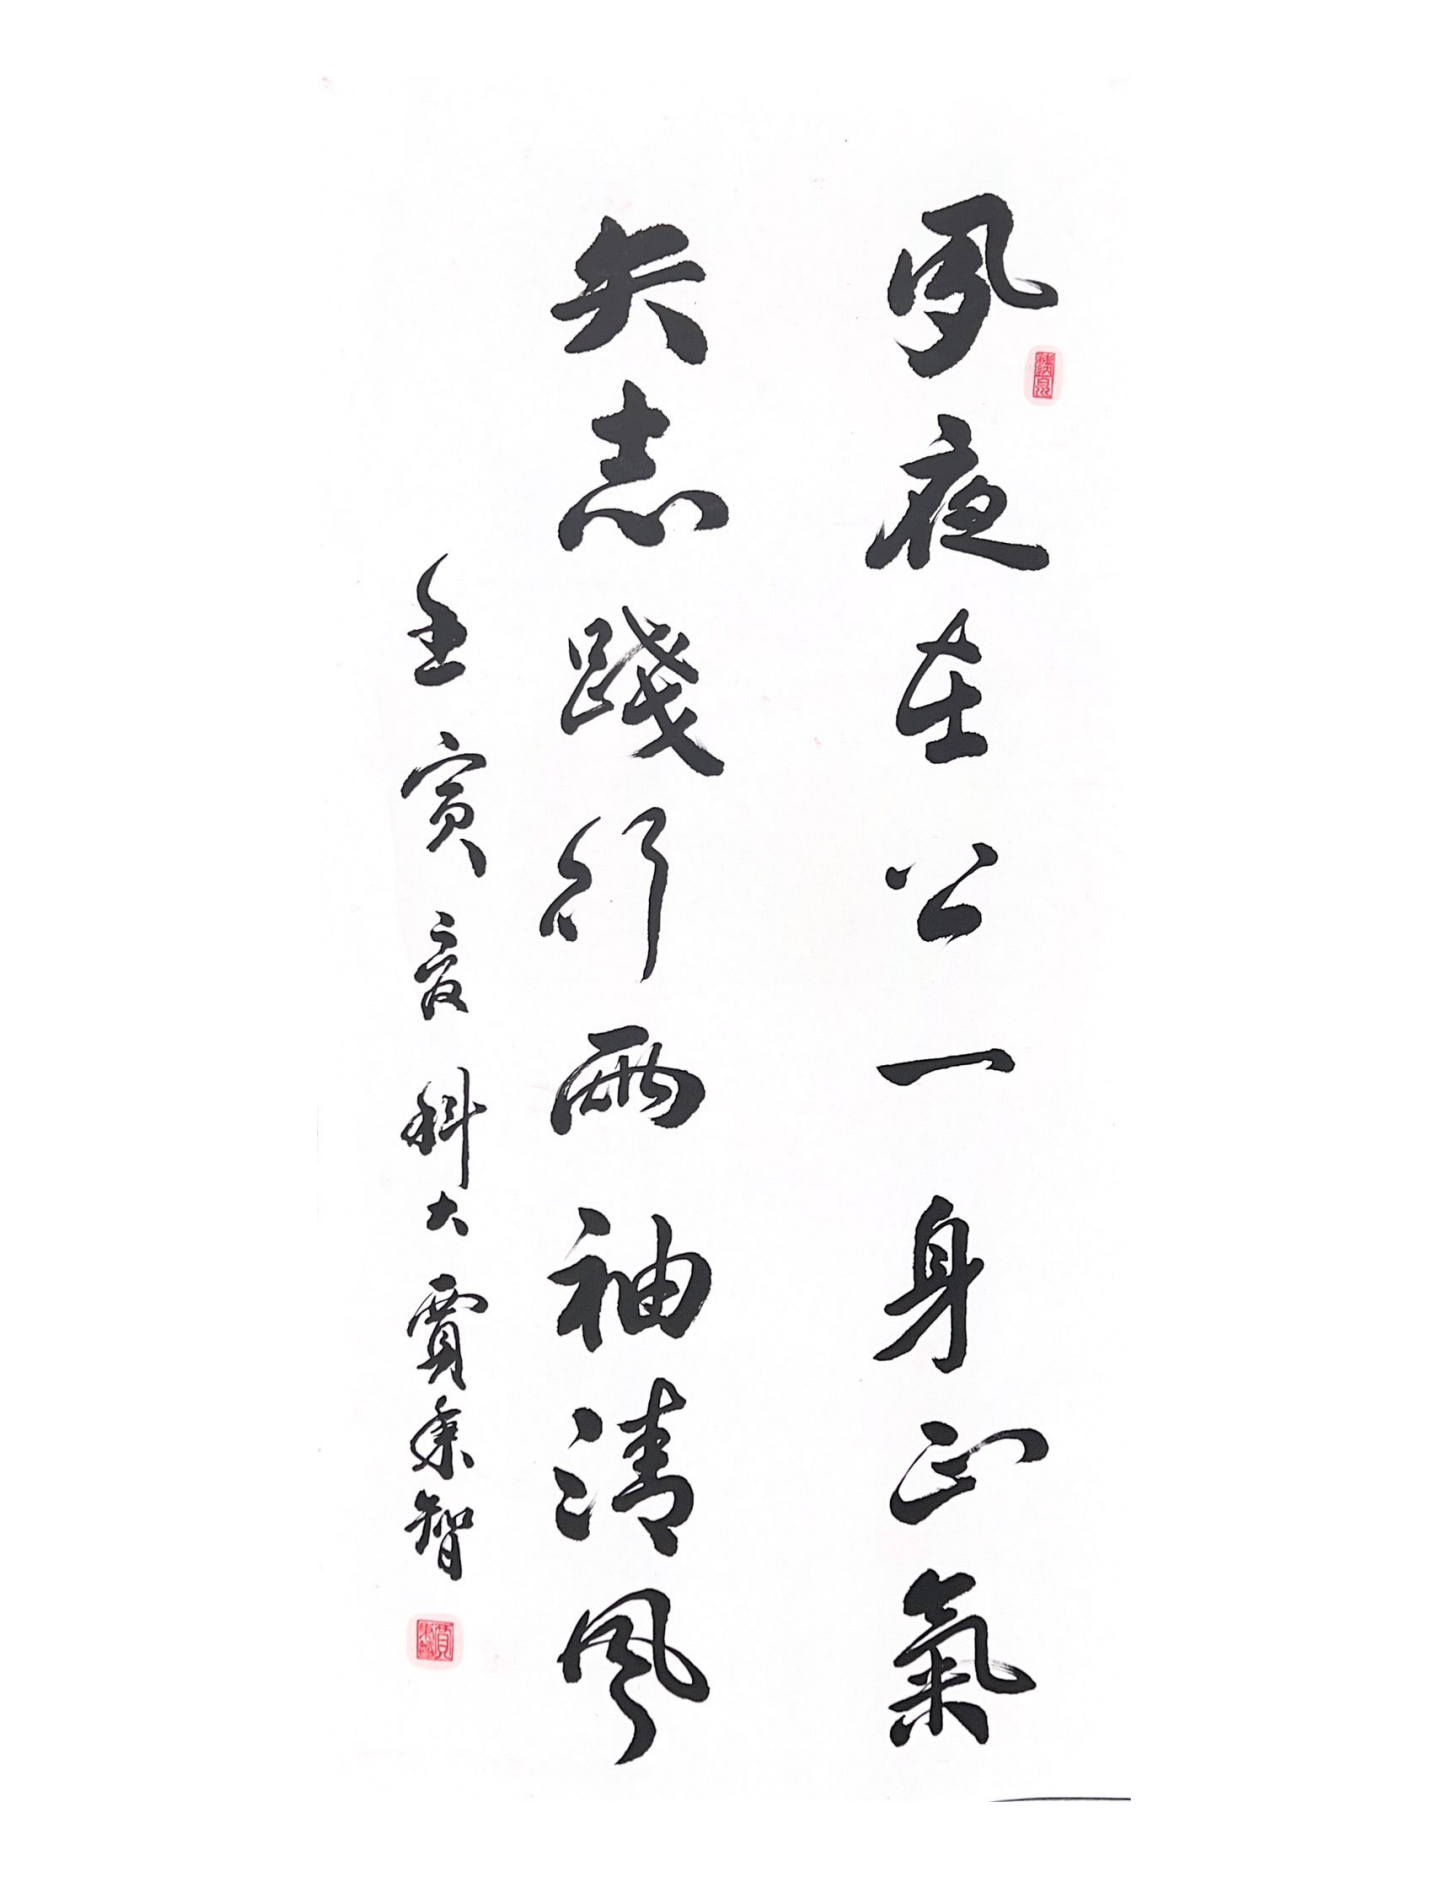 夙夜在公一身正氣
矢志踐行兩袖清風
壬寅夏科大賈秉智